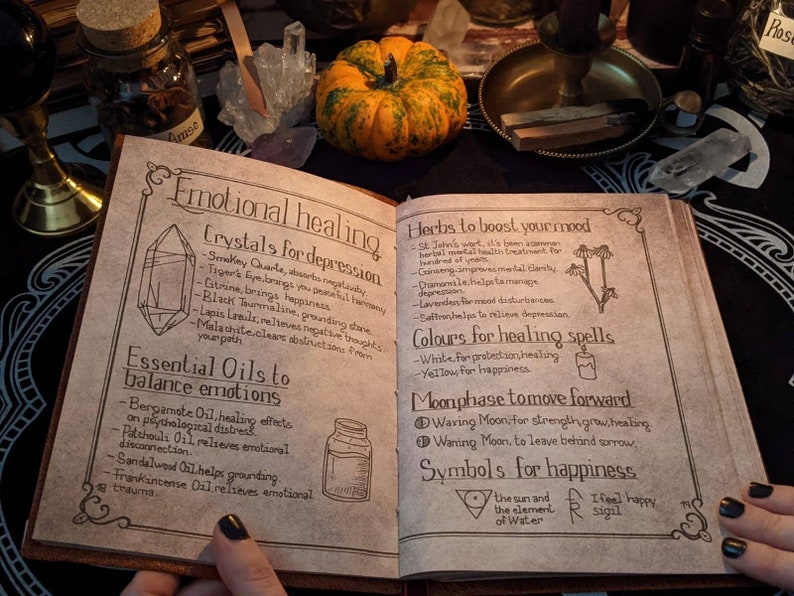 Anise
Rose
Emotional healing
Crystals for depression
- Smokey Quartz, absorbs negativity.
- Tiger's Eye, brings you peaceful harmony
- Citrine, brings happiness.
- Black Tourmaline, grounding stone.
- Lapis Lazuli, relieves negative thoughts
- Malachite, clears obstructions from
your path.
Essential Oils to
balance emotions
- Bergamote Oil, healing effects
on psychological distress.
- Patchouli Oil, relieves emotional
disconnection.
- Sandalwood Oil, helps grounding.
- Frankincense Oil, relieves emotional
trauma.
18
Herbs to boost your mood
- St John's wort, it's been a common
herbal mental health treatment for
hundred of years.
- Ginseng, improves mental clarity.
- Chamomile, helps to manage
depression.
- Lavender, for mood disturbances.
- Saffron, helps to relieve depression.
Colours for healing spells
- White, for protection, healing
- Yellow, for happiness.
Moon phase to move forward
Waxing Moon, for strength, grow, healing.
Waning Moon, to leave behind sorrow.
Symbols for happiness
the sun and
the element
of Water
I feel happy
sigil
19